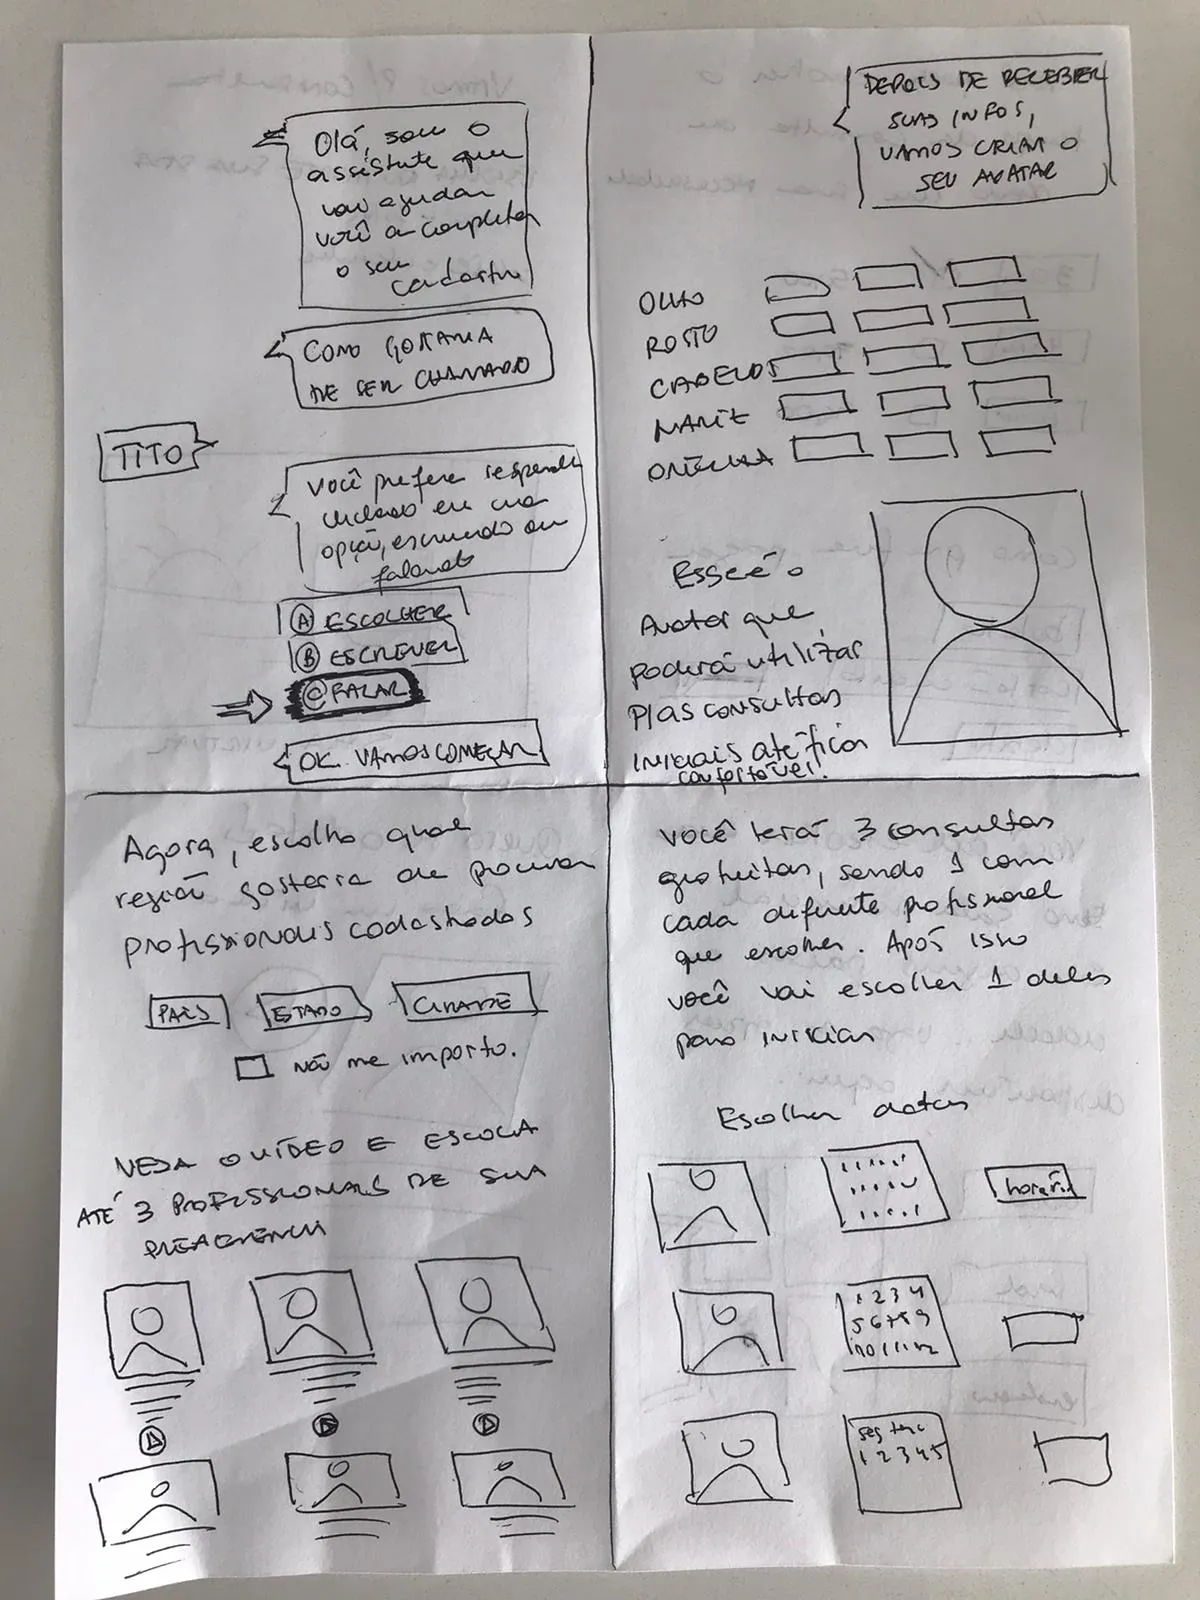 Olá, sou o
assistente que
vai ajudar
você a completar
o seu
cadastro
COMO GOSTARIA
DE SER CHAMADO
TITO
Você prefere responder
clicando em uma
opção, escrevendo ou
falando
A ESCOLHER
B ESCREVER
C FALAR
OK. VAMOS COMEÇAR.
DEPOIS DE RECEBER
SUAS INFOS,
VAMOS CRIAR O
SEU AVATAR
OLHO
ROSTO
CABELOS
NARIZ
ORELHA
Esse é o
Avatar que
poderá utilizar
P/AS CONSULTAS
INICIAIS até ficar
confortável.
Agora, escolha qual
região gostaria de procurar
profissionais cadastrados
PAÍS
ESTADO
CIDADE
Não me importo.
VEJA O VÍDEO E ESCOLHA
ATÉ 3 PROFISSIONAIS DE SUA
PREFERÊNCIA
Você terá 3 consultas
gratuitas, sendo 1 com
cada diferente profissional
que escolher. Após isso
você vai escolher 1 deles
para iniciar
Escolher datas
horário
1 2 3 4
5 6 7 8 9
10 11 12
seg ter
1 2 3 4 5